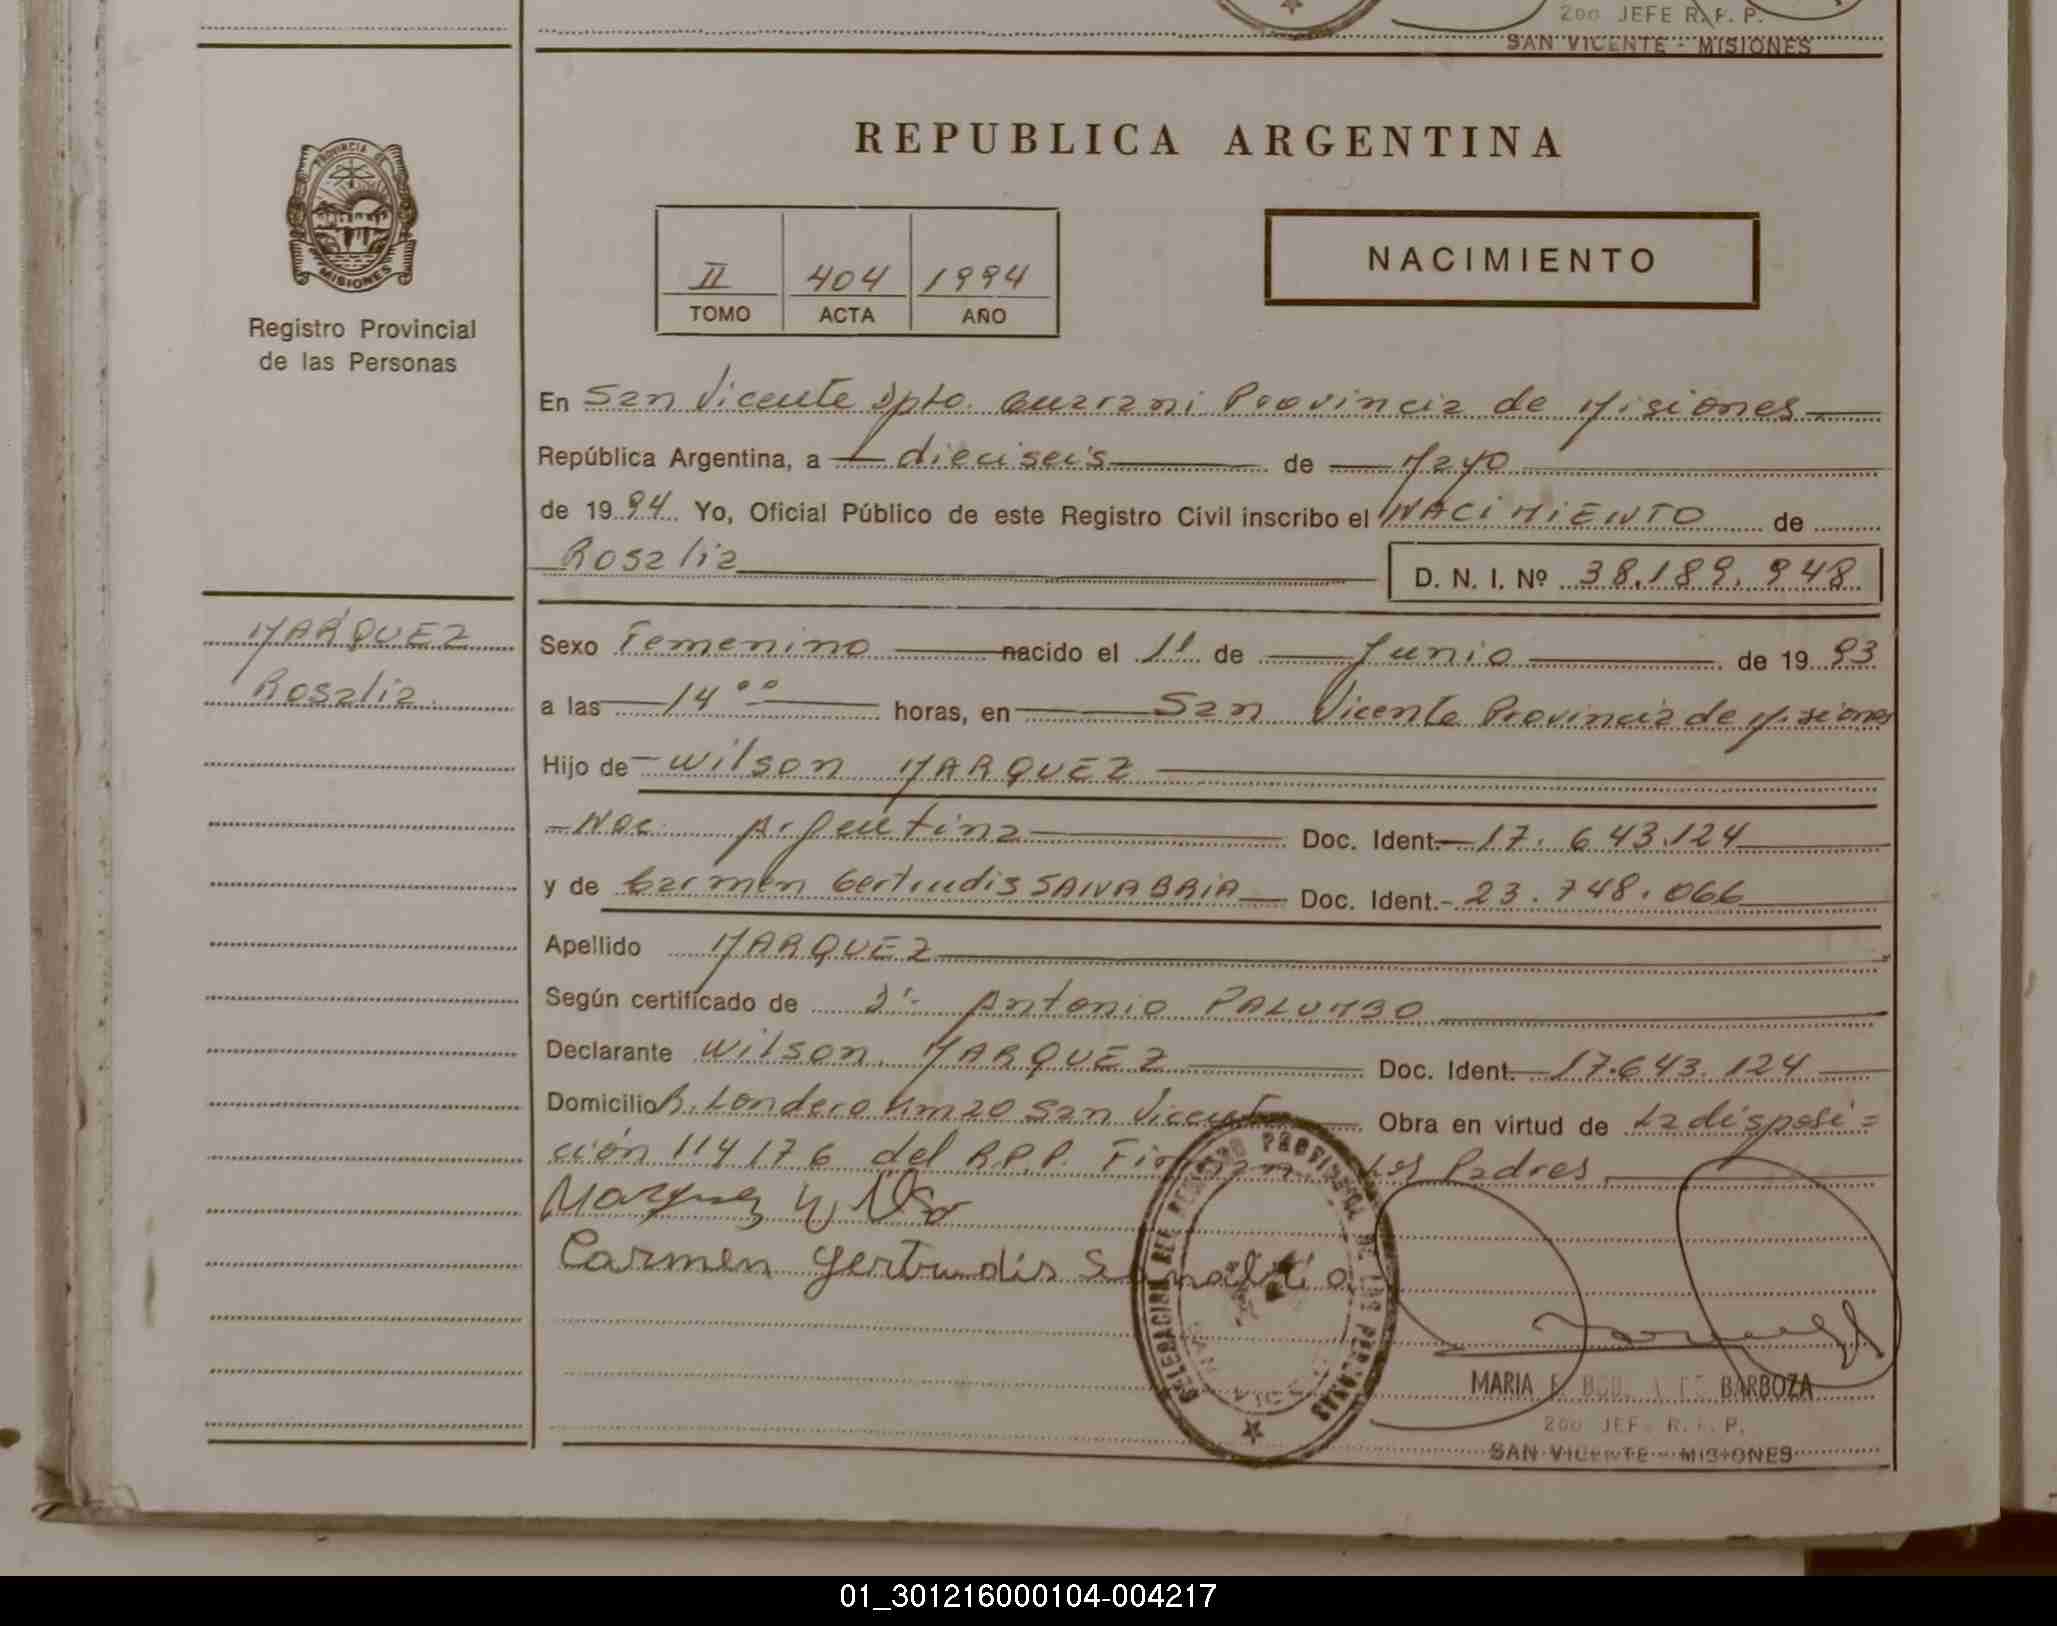 2do JEFE R. P. P.
SAN VICENTE - MISIONES
PROVINCIA DE
MISIONES
Registro Provincial
de las Personas
REPUBLICA ARGENTINA
II 404 1994
TOMO ACTA AÑO
NACIMIENTO
En San Vicente Dpto. Guarani Provincia de Misiones
República Argentina, a dieciseis de Mayo
de 1994 Yo, Oficial Público de este Registro Civil inscribo el NACIMIENTO de
Rosalia D. N. I. Nº 38.189.948
MARQUEZ
Rosalia
Sexo Femenino nacido el 11 de Junio de 1993
a las 14 00 horas, en San Vicente Provincia de Misiones
Hijo de Wilson MARQUEZ
Nac. Argentina Doc. Ident. 17.643.124
y de Carmen Gertrudis SANABRIA Doc. Ident. 23.748.066
Apellido MARQUEZ
Según certificado de Dr. Antonio PALUMBO
Declarante Wilson MARQUEZ Doc. Ident. 17.643.124
Domicilio B. Londero Km 20 San Vicente Obra en virtud de La disposi=
ción 114176 del R.P.P. Firman Los Padres
Carmen Gertrudis Sanabria
DELEGACION DEL REGISTRO PROVINCIAL DE LAS PERSONAS
SAN VICENTE
MARIA E. DE BARBOZA
2do JEFE R. P. P.
SAN VICENTE - MISIONES
01_301216000104-004217